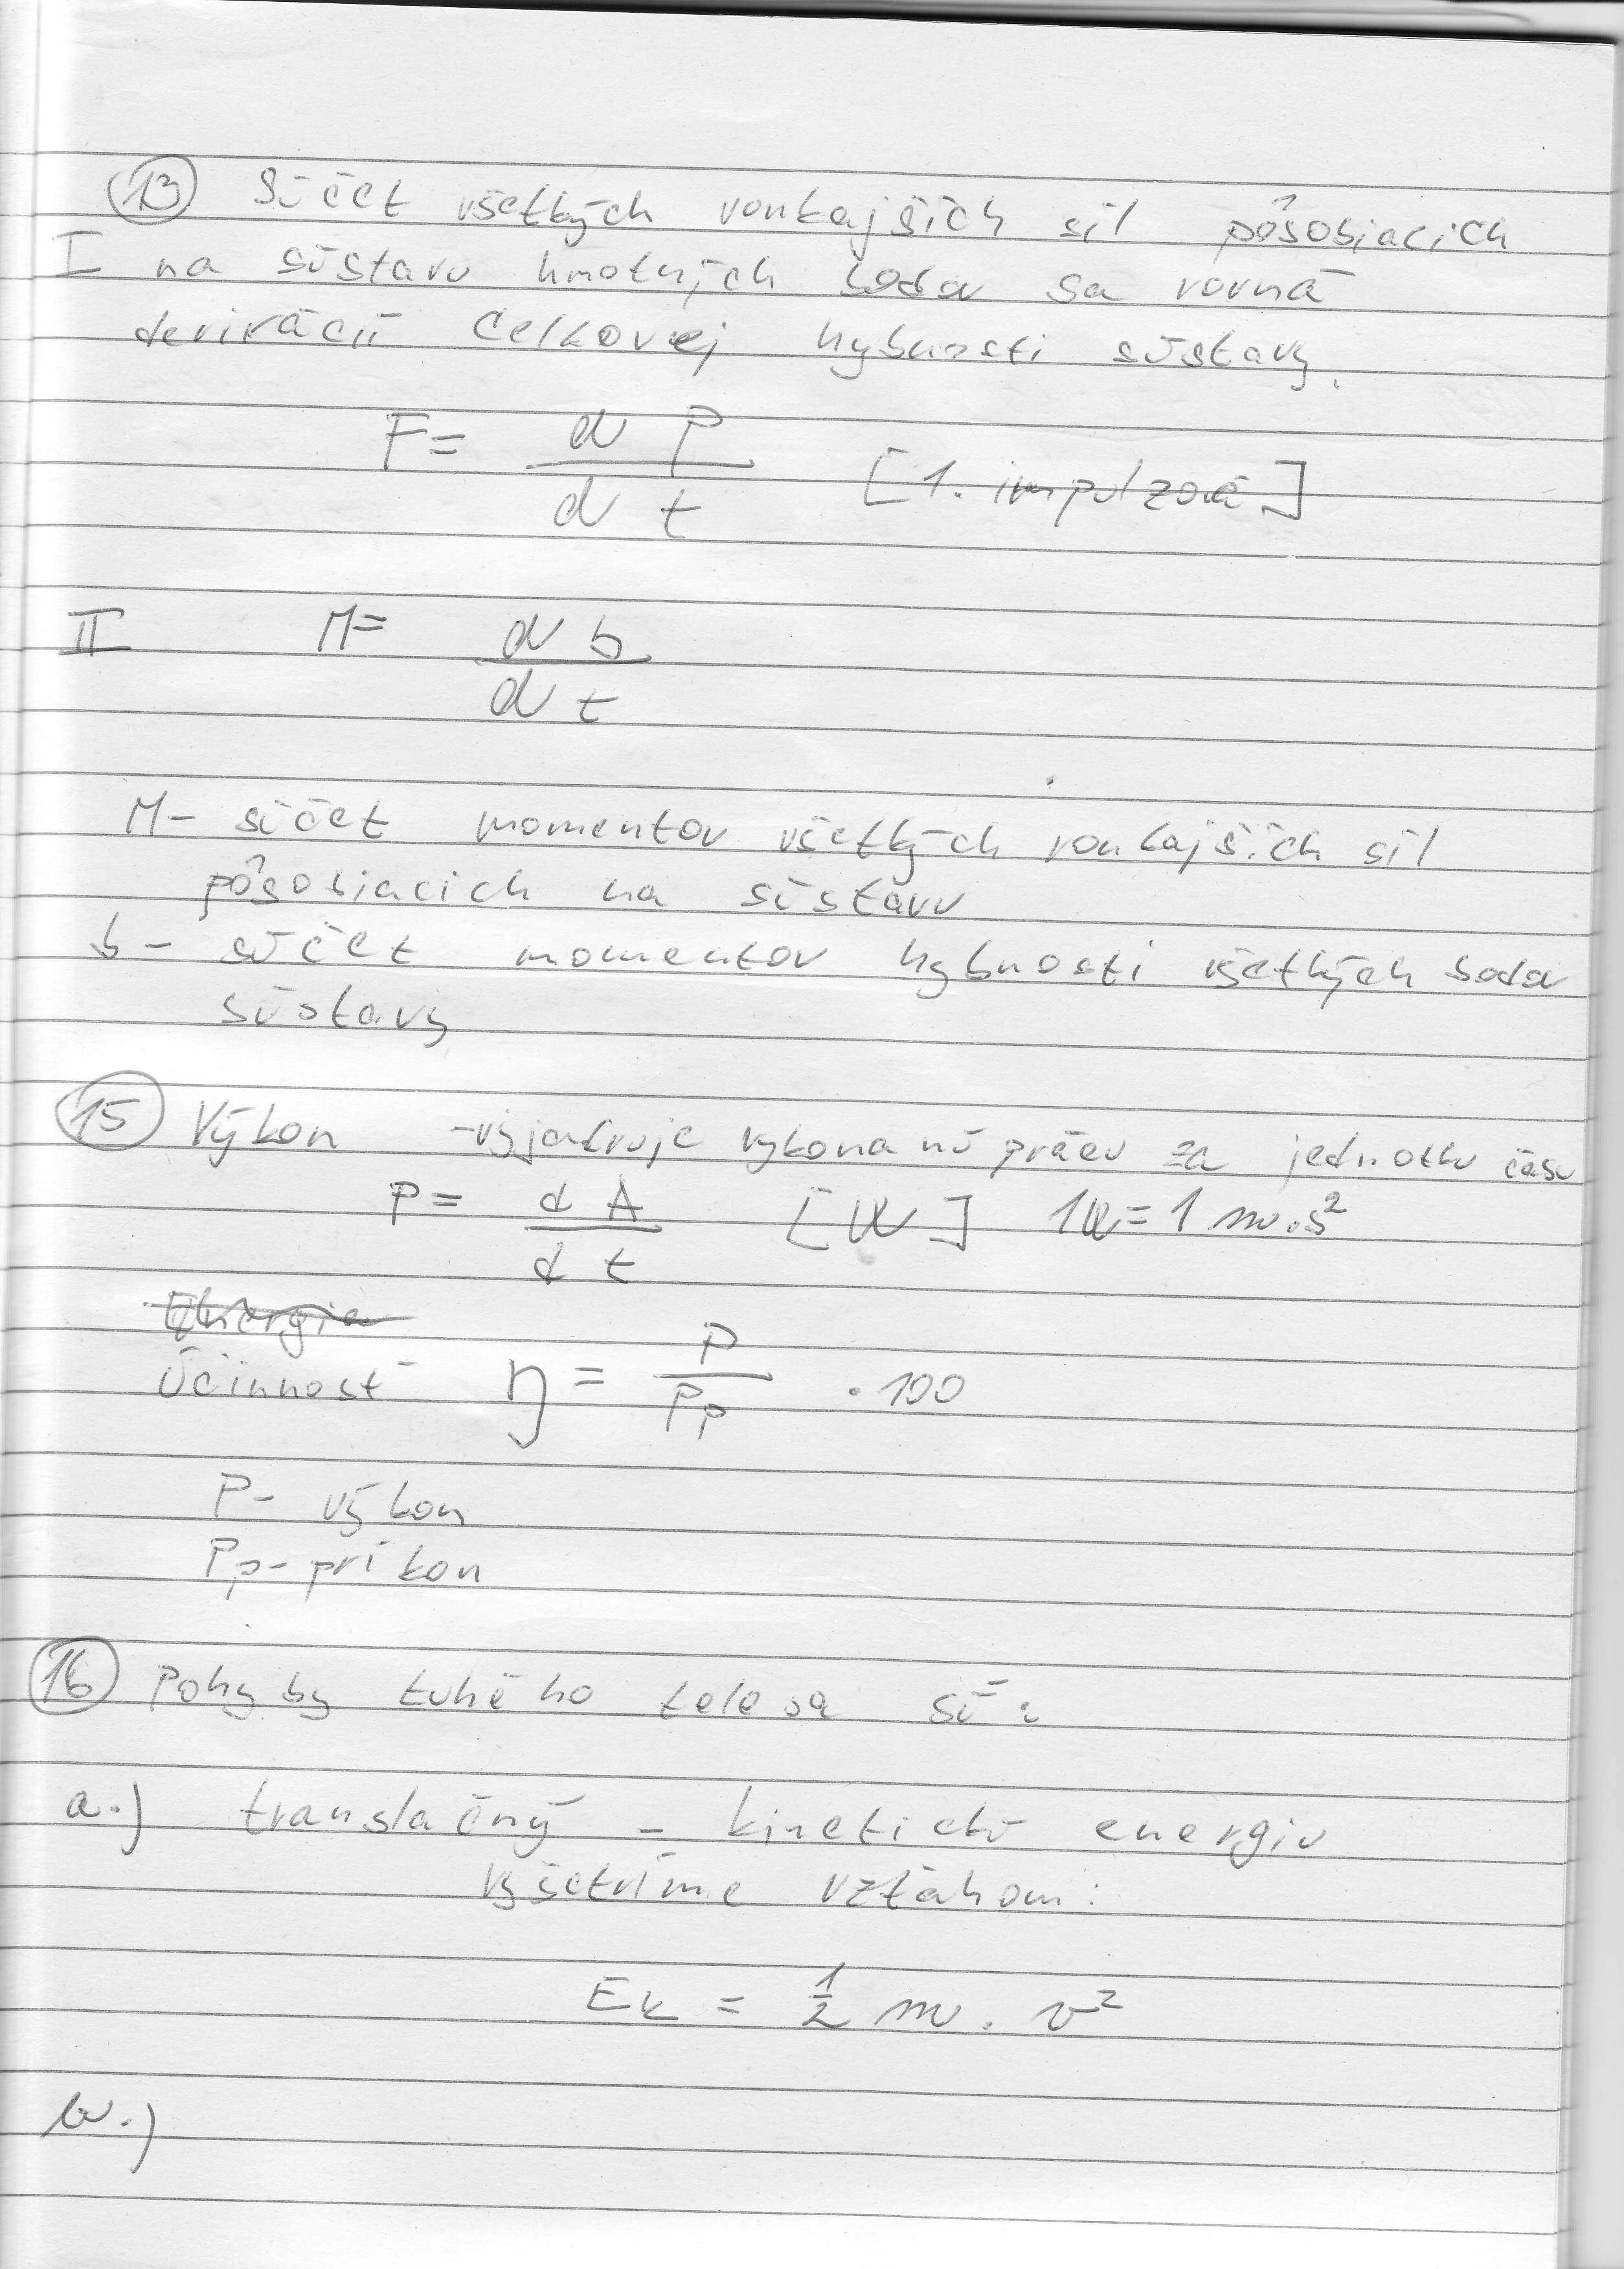 13 Súčet všetkých vonkajších síl pôsobiacich
I na sústavu hmotných bodov sa rovná
derivácií celkovej hybnosti sústavy.
F = dP/dt [1. impulzová]
II M = db/dt
M - súčet momentov všetkých vonkajších síl
pôsobiacich na sústavu
b - súčet momentov hybnosti všetkých bodov
sústavy
15 Výkon - vyjadruje vykonanú prácu za jednotku času
P = dA/dt [W] 1W = 1 m.s²
Účinnosť η = P/Pp . 100
P - výkon
Pp - príkon
16 Pohyby tuhého telesa sú:
a.) translačný - kinetickú energiu
vyšetríme vzťahom:
Ek = 1/2 m . v²
b.)